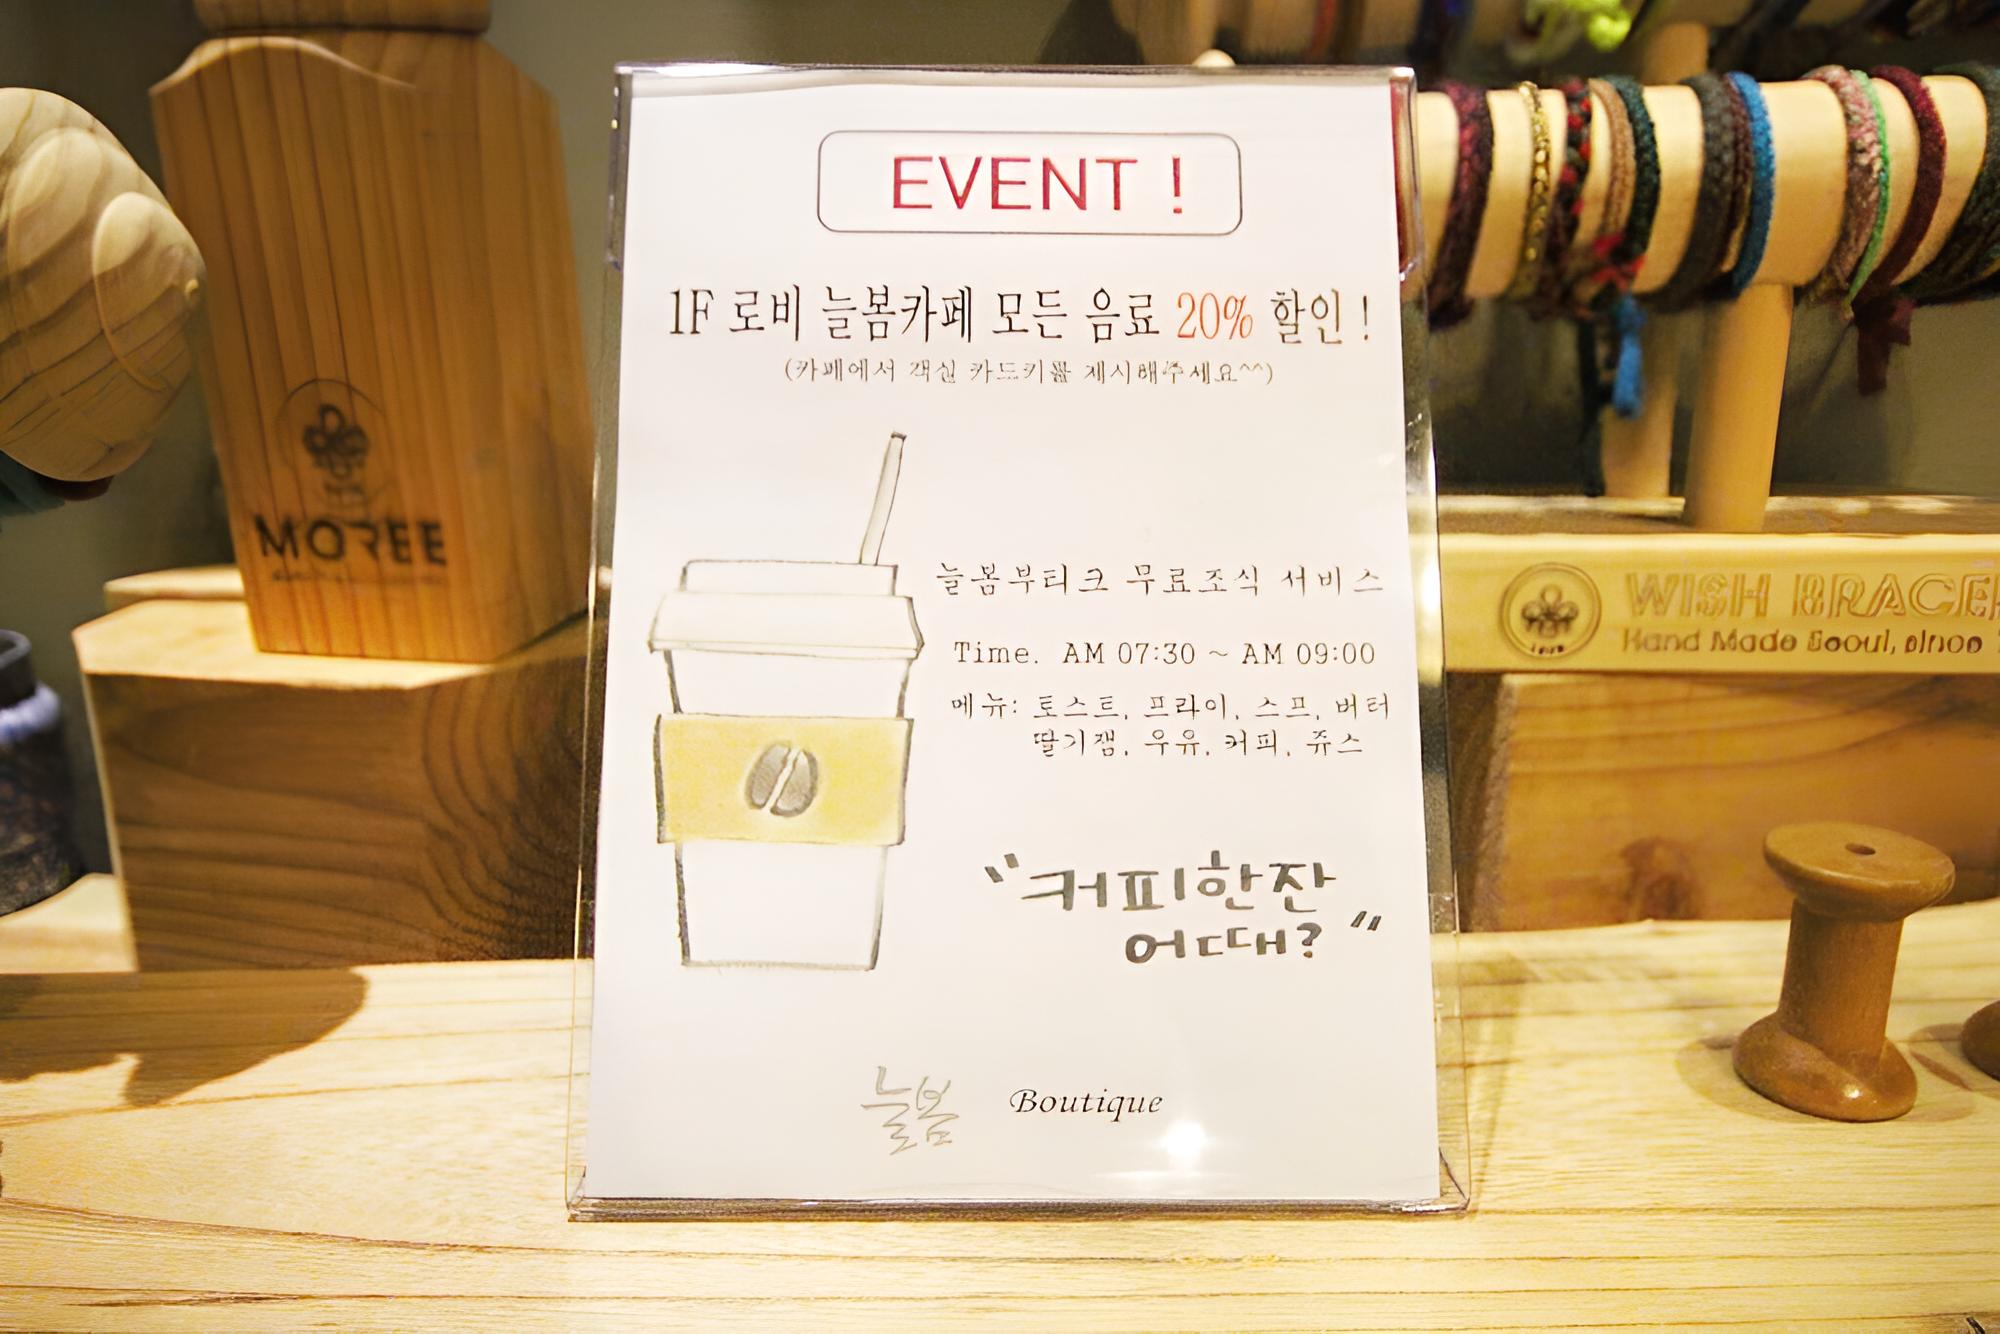 EVENT !
1F 로비 늘봄카페 모든 음료 20% 할인 !
(카페에서 객실 카드키를 제시해주세요^^)
늘봄부티크 무료조식 서비스
Time. AM 07:30 ~ AM 09:00
메뉴: 토스트, 프라이, 스프, 버터
딸기잼, 우유, 커피, 쥬스
"커피한잔
어때?"
늘봄 Boutique
MOREE
WISH BRACE
Hand Made Seoul, since